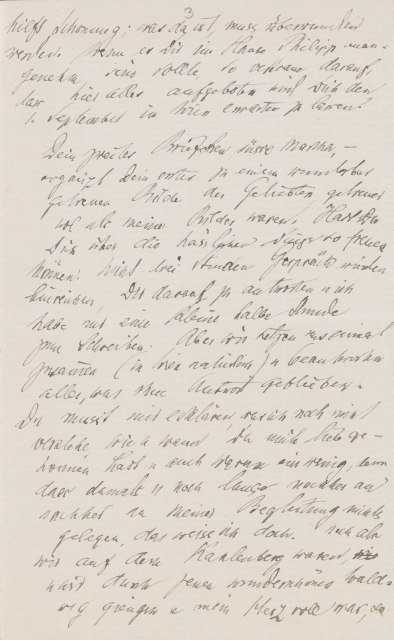 3
hilft Schonung; was da ist, muss überwunden
werden. Wenn es Dir im Hause Philipp unan-
genehm sein sollte, so vertraue darauf,
dass hier alles aufgeboten wird Dich den
1. September in Wien erwarten zu lassen.
Dein zweites Briefchen süsse Martha, –
ergänzt Dein erstes zu einem wunderbar
getreuen Bilde der Geliebten, getreuer
wol als meine Bilder waren. Hast Du
Dich über die hässlichen Dinge so freuen
können. Nicht drei Stunden Gespräch würden
hinreichen, Dir darauf zu antworten u ich
habe nur eine kleine halbe Stunde
zum Schreiben. Aber wir setzen uns einmal
zusammen (in Wien natürlich) u beantworten
alles, was ohne Antwort geblieben.
Du musst mir erklären, was ich noch nicht
verstehe wie u wann Du mich lieb ge-
wonnen hast u auch warum ein wenig, denn
dass damals u noch lange nachher an
u mir
meiner Begleitung nichts
gelegen, das weiss ich doch. Noch als
wir auf dem Kahlenberg waren,
u wir durch jenen wunderschönen Wald-
weg giengen u mein Herz voll war, da